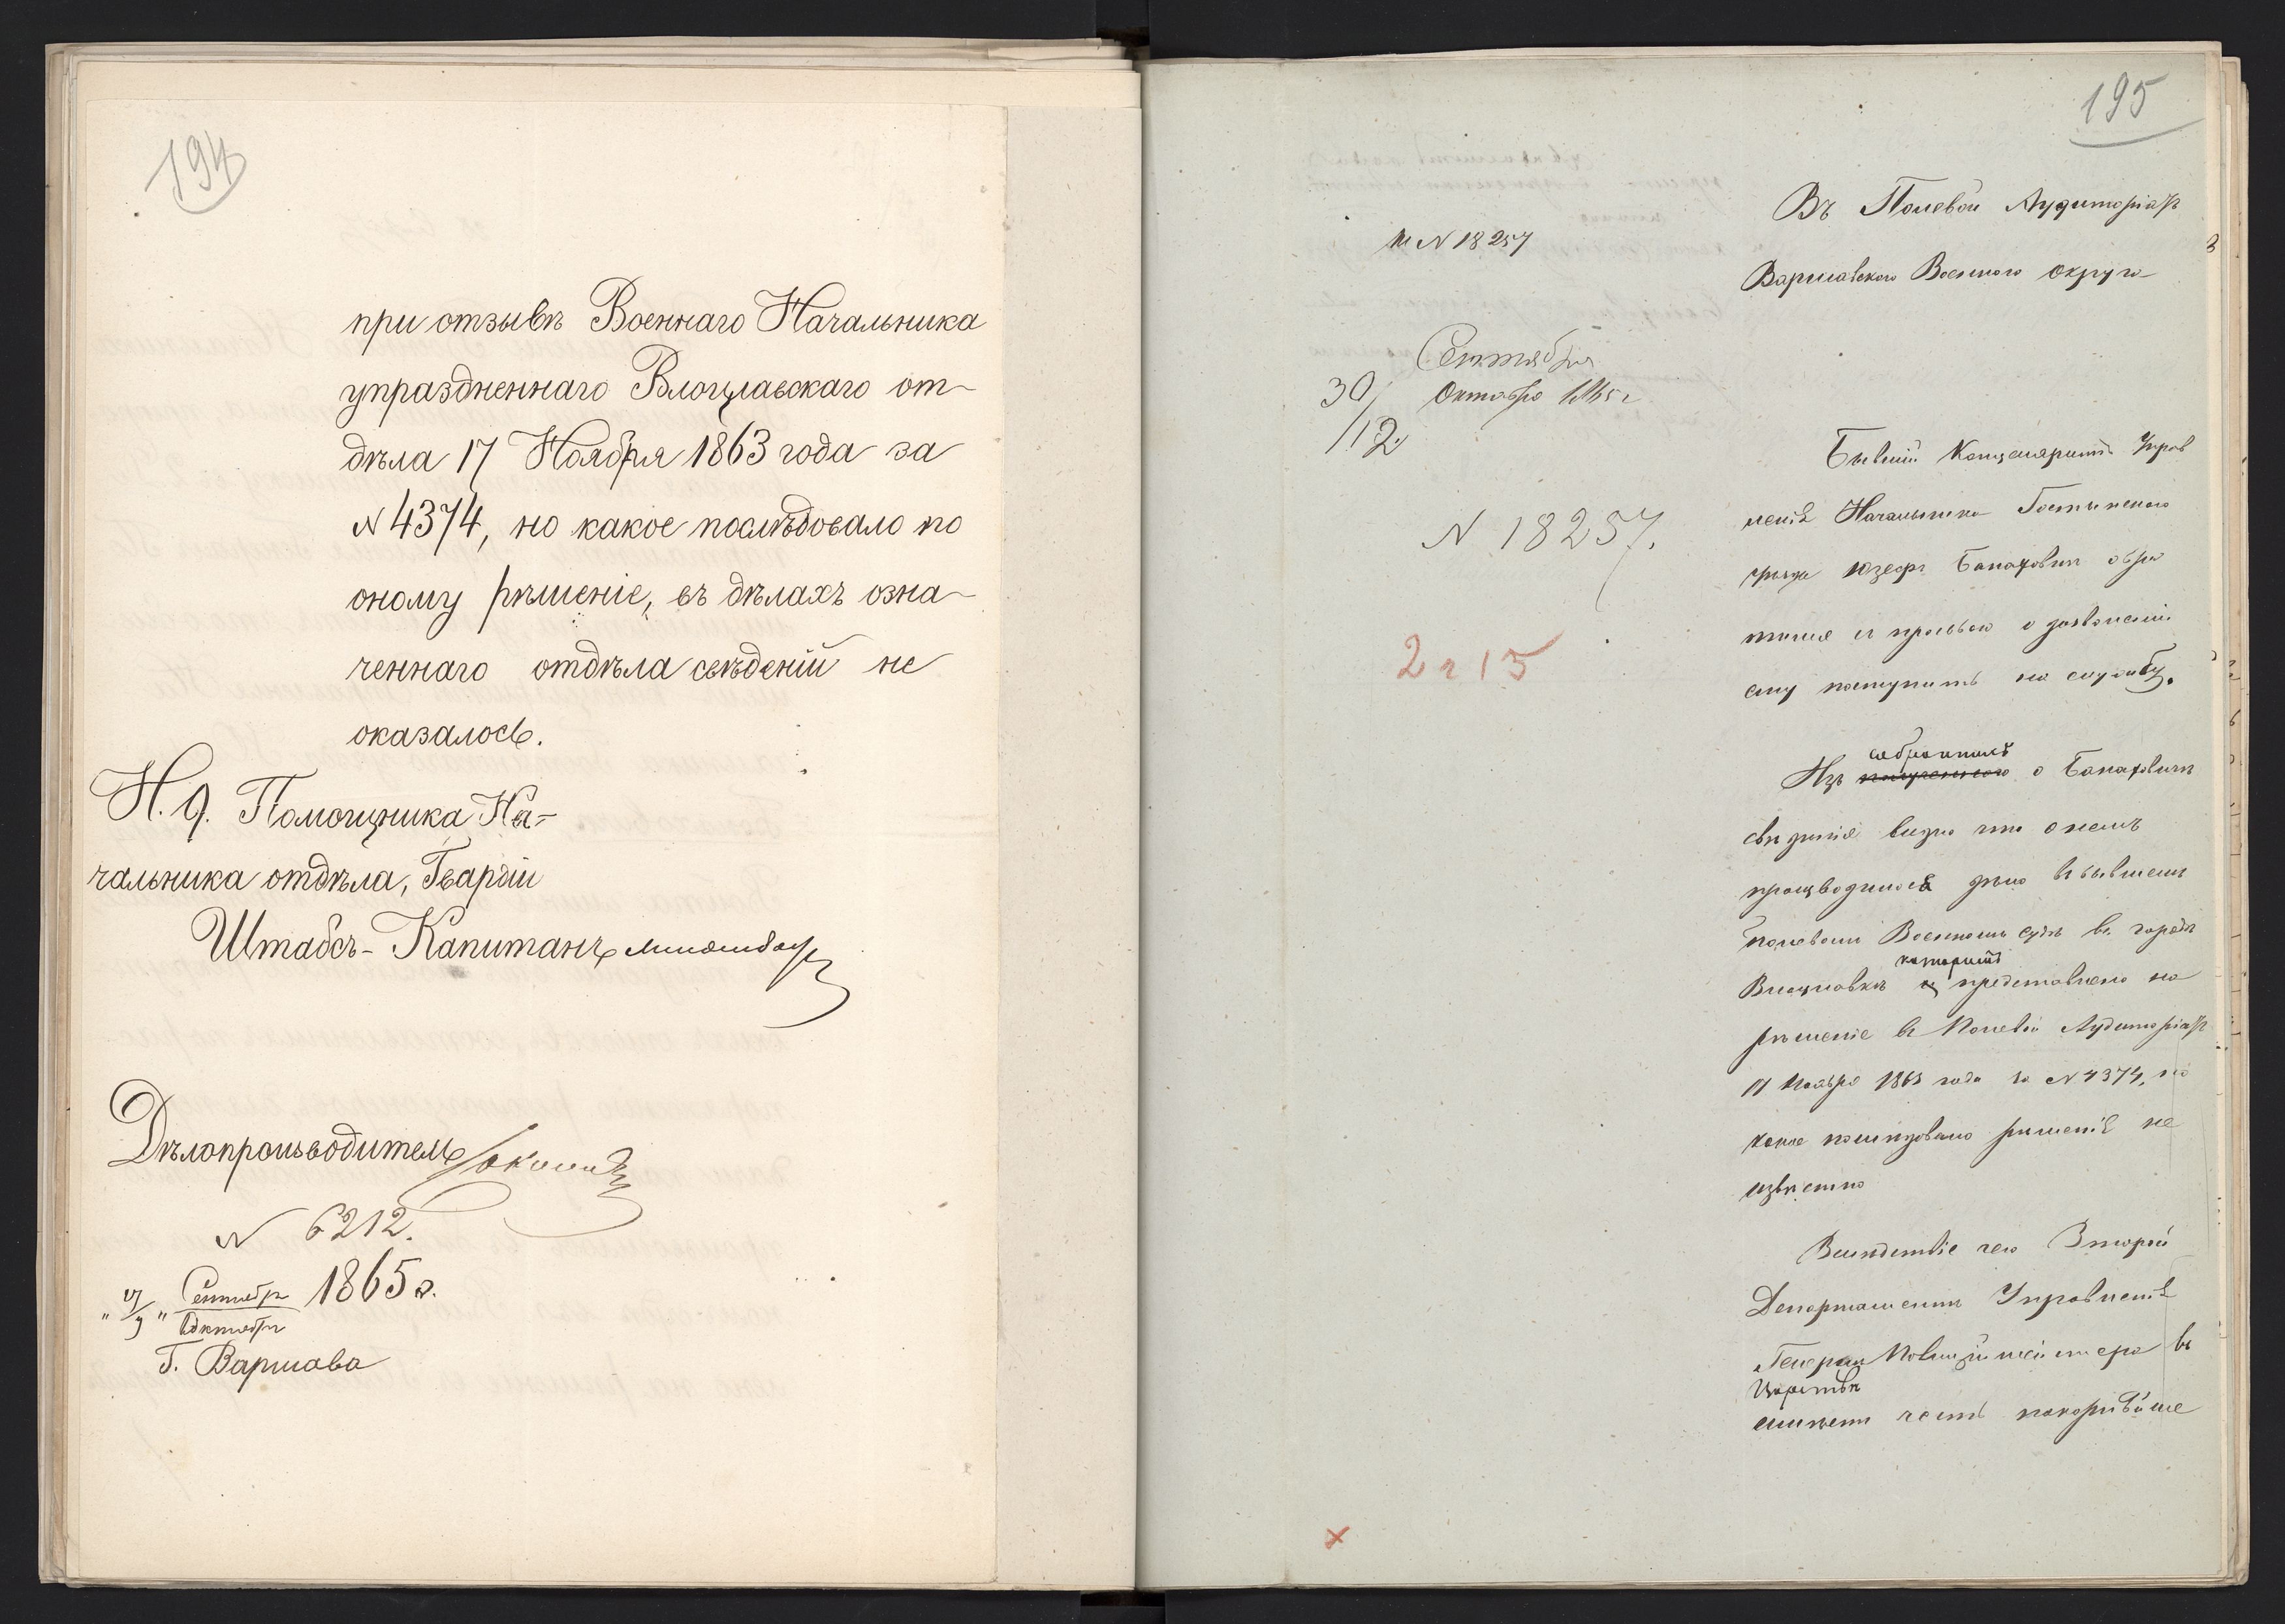 194
при отзывѣ Военнаго Начальника
упраздненнаго Влоцлавскаго от-
дѣла 17 Ноября 1863 года за
№ 4374, но какое послѣдовало по
оному рѣшеніе, въ дѣлахъ озна-
ченнаго отдѣла свѣденій не
оказалось.
И. д. Помощника На-
чальника отдѣла, Гвардіи
Штабсъ-Капитанъ
Дѣлопроизводитель
№ 6212.
Сентября 1865 г.
Октября
Г. Варшава
195
Въ Полевой Аудиторіатъ
Варшавскаго Военнаго округа
№ 18257
Сентября
30/ Октября 1865 г
/12
№ 18257.
2 г 15
Бывшій Канцеляристъ Управ
ленія Начальника Гостынскаго
уѣзда Юзефъ Банахович обра
тился съ просьбою о дозволеніи
ему поступить на службу.
собранныхъ
Изъ полученнаго о Банаховичѣ
свѣденія видно что о немъ
производилось дѣло въ бывшемъ
полевомъ Военномъ судѣ въ городѣ
которое
Влоцлавкѣ и представлено на
рѣшеніе въ Полевой Аудиторіатъ
17 Ноября 1863 года за № 4374, но
какое послѣдовало рѣшеніе не
извѣстно
Вслѣдствіе чего Второй
Департаментъ Управленія
Генералъ Полицiймейстера въ
Царствѣ
имѣетъ честь покорнѣйше